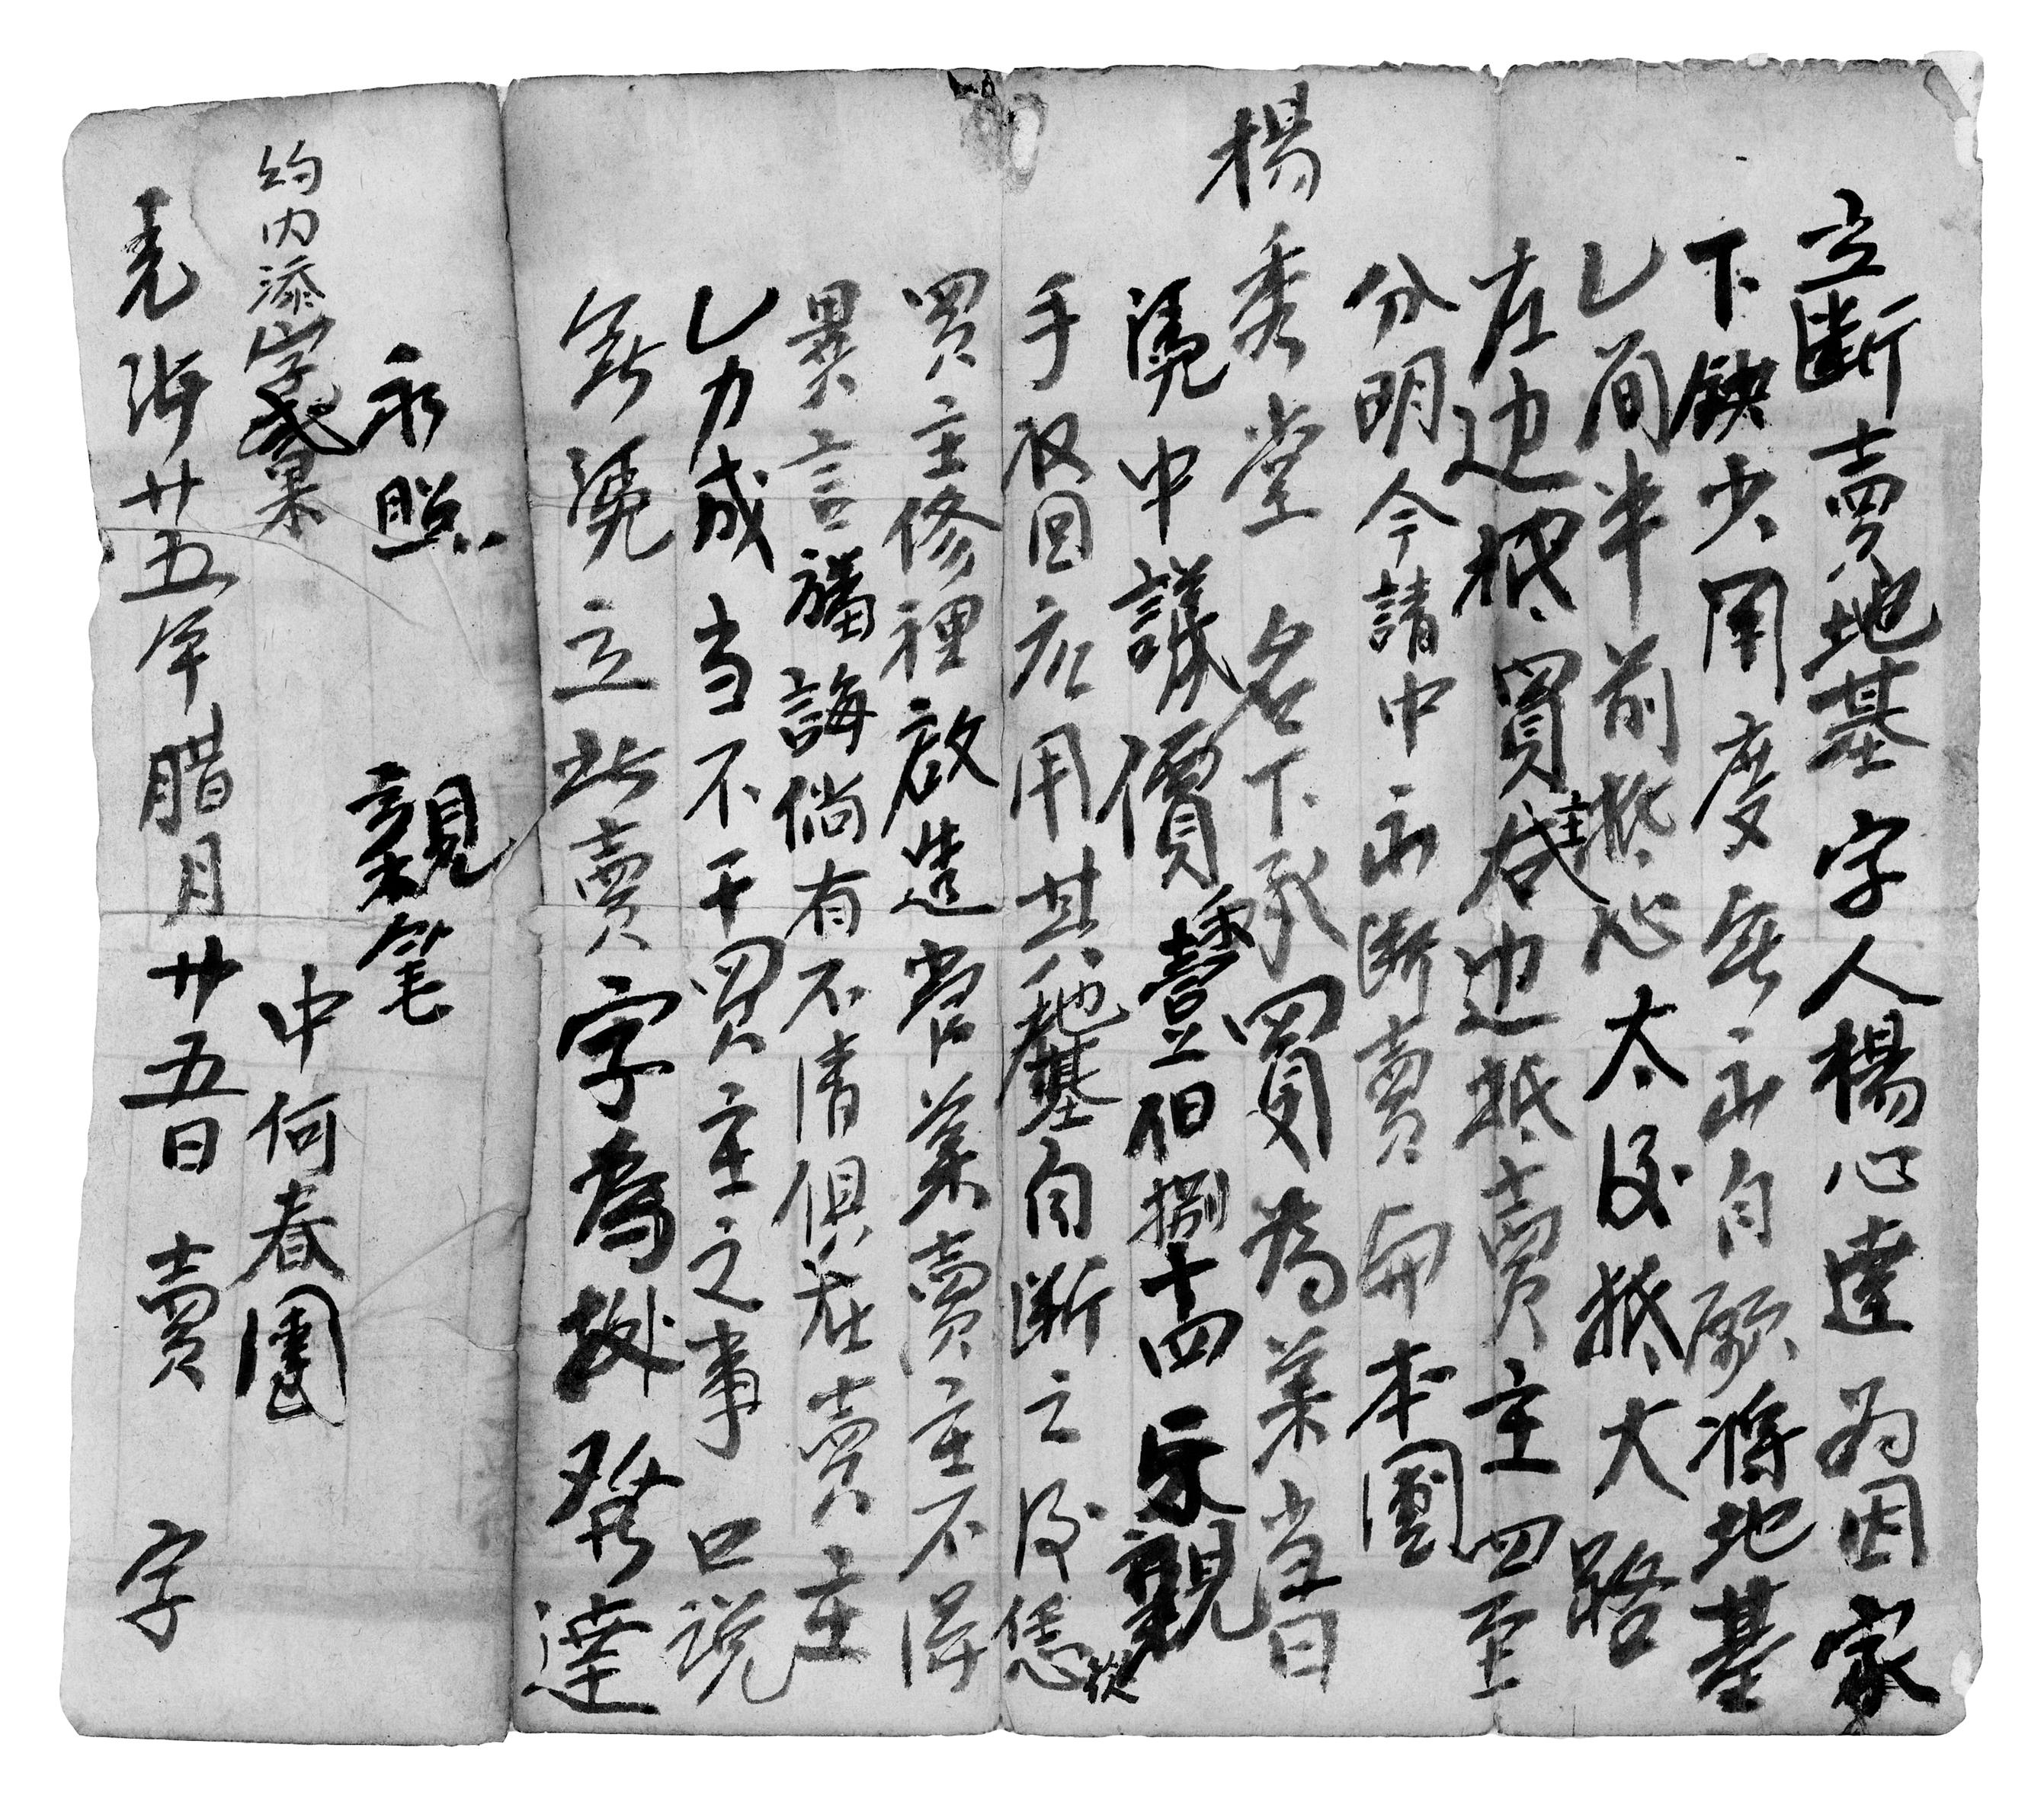 立断賣地基字人楊心達為因家
下缺少用度無出自願将地基
乙间半前抵心太後抵大路
左边抵買主右边抵賣主四至
分明今請中出断賣與本團
楊秀堂名下承買為業当日
憑中議價錢壹佰捌十四千親
手收回應用其地基自断之後恁從
買主修理啟造管業賣主不得
異言翻誨倘有不清俱在賣主
乙力成当不干買主之事口説
無憑立此賣字為據發達
永照 親笔
約内添字弍ケ 中何春團
光緒廿五年腊月廿五日賣字